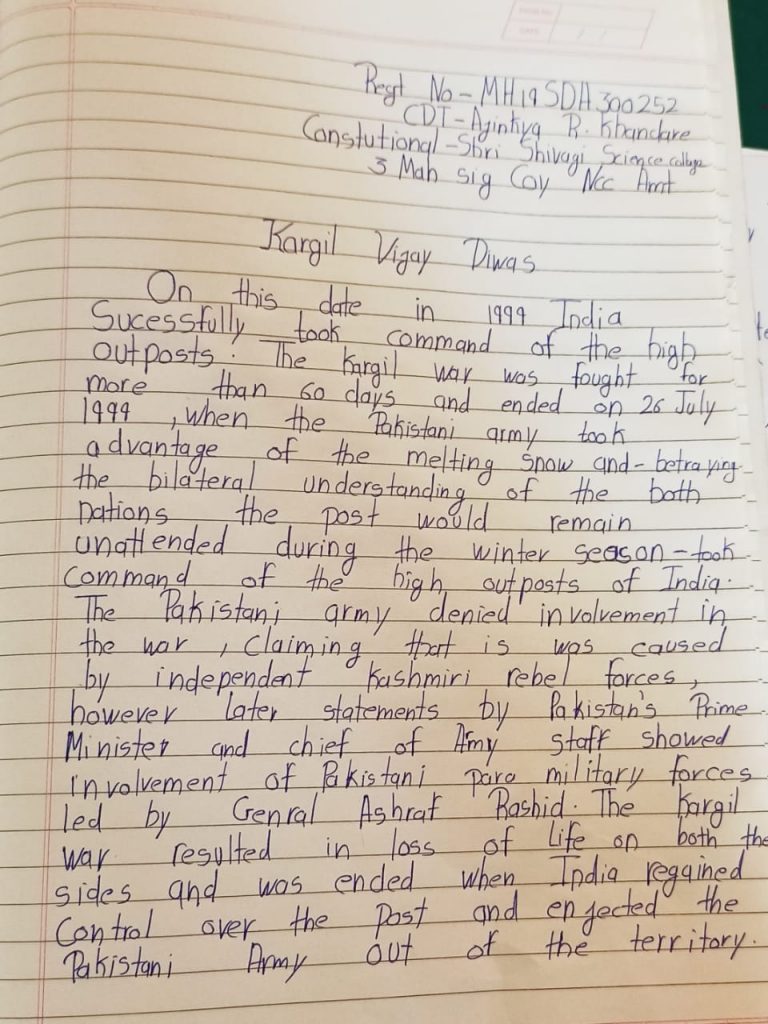 Regt No - MH19SDA300252
CDT - Ajinkya R. Khandare
Constutional - Shri Shivagi Science collage
3 Mah Sig Coy Ncc Amt
Kargil Vigay Diwas
On this date in 1999 India
Sucessfully took command of the high
outposts. The Kargil war was fought for
more than 60 days and ended on 26 July
1999 , when the Pakistani army took
advantage of the melting snow and - betraying
the bilateral understanding of the both
nations the post would remain
unattended during the winter season - took
Command of the high outposts of India.
The Pakistani army denied involvement in
the war , Claiming that is was caused
by independent Kashmiri rebel forces ,
however later statements by Pakistan's Prime
Minister and chief of Army staff showed
involvement of Pakistani para military forces
led by Genral Ashraf Rashid. The Kargil
war resulted in loss of Life on both the
sides and was ended when India regained
Control over the Post and enjected the
Pakistani Army out of the territory.